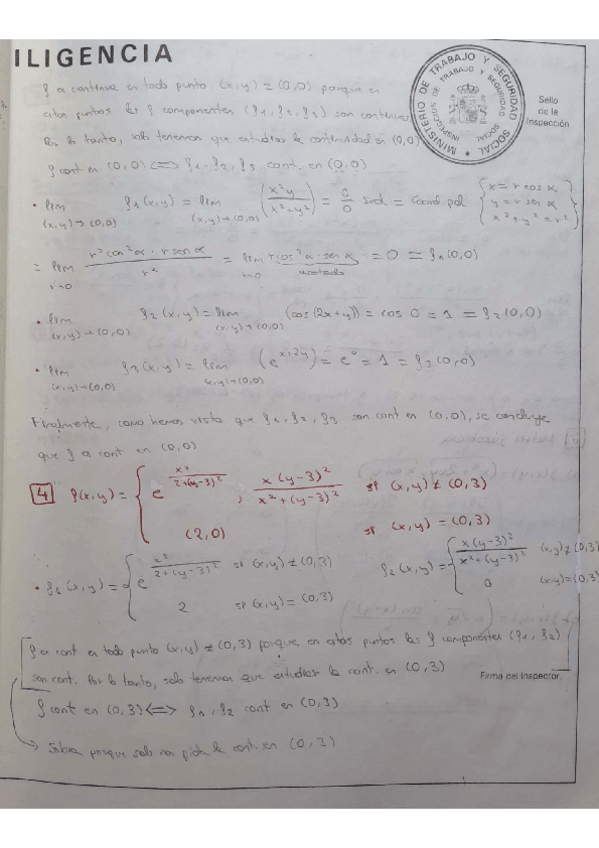 ILIGENCIA
MINISTERIO DE TRABAJO Y SEGURIDAD SOCIAL
INSPECCIÓN DE TRABAJO Y SEGURIDAD SOCIAL
Sello
de la
Inspección
f es continua en todo punto (x,y) ≠ (0,0) porque en
estos puntos las f componentes (f1, f2, f3) son continuas
Por lo tanto, solo tenemos que estudiar la continuidad en (0,0)
f cont en (0,0) <=> f1, f2, f3 cont. en (0,0)
• lim (x,y)→(0,0) f1(x,y) = lim (x,y)→(0,0) (x²y / x²+y²) = 0/0 Ind = Coord. pol { x = r cos α y = r sen α x²+y² = r² }
= lim r→0 r² cos² α · r sen α / r² = lim r→0 r cos² α · sen α acotado = 0 = f1(0,0)
• lim (x,y)→(0,0) f2(x,y) = lim (x,y)→(0,0) (cos(2x+y)) = cos 0 = 1 = f2(0,0)
• lim (x,y)→(0,0) f3(x,y) = lim (x,y)→(0,0) (e^(x+2y)) = e° = 1 = f3(0,0)
Finalmente, como hemos visto que f1, f2, f3 son cont en (0,0), se concluye
que f es cont en (0,0)
4 f(x,y) = { e^(x² / 2+(y-3)²) , x(y-3)² / x²+(y-3)² si (x,y) ≠ (0,3)
(2,0) si (x,y) = (0,3)
• f1(x,y) = { e^(x² / 2+(y-3)²) si (x,y) ≠ (0,3) f2(x,y) = { x(y-3)² / x²+(y-3)² (x,y) ≠ (0,3)
2 si (x,y) = (0,3) 0 (x,y) = (0,3)
f es cont en todo punto (x,y) ≠ (0,3) porque en estos puntos las f componentes (f1, f2)
son cont. Por lo tanto, solo tenemos que estudiar la cont. en (0,3)
Firma del Inspector.
f cont en (0,3) <=> f1, f2 cont en (0,3)
Sobra porque solo nos pide la cont. en (0,3)